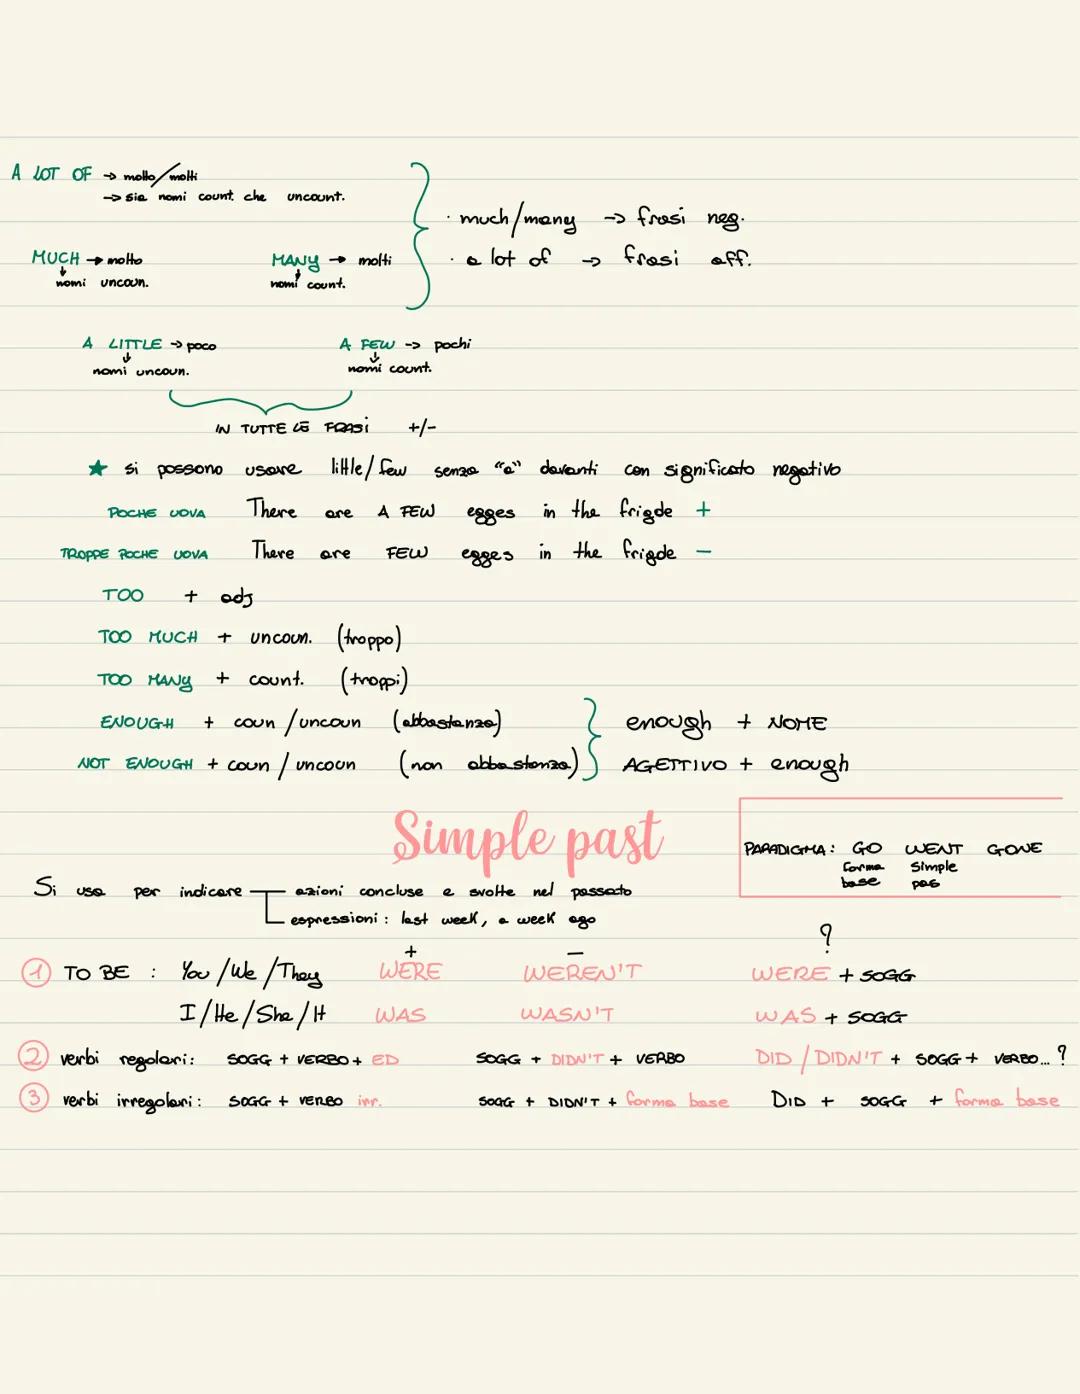 A LOT OF → molto/molti
→ sia nomi count. che uncount.
· much/many → frasi neg.
MUCH → molto MANY → molti · a lot of → frasi aff.
nomi uncoun. nomi count.
A LITTLE → poco A FEW → pochi
nomi uncoun. nomi count.
IN TUTTE LE FRASI +/-
★ si possono usare little/few senza "a" davanti con significato negativo
POCHE UOVA There are A FEW egges in the frigde +
TROPPE POCHE UOVA There are FEW egges in the frigde -
TOO + adj
TOO MUCH + uncoun. (troppo)
TOO MANY + count. (troppi)
ENOUGH + coun/uncoun (abbastanza) enough + NOME
NOT ENOUGH + coun/uncoun (non abbastanza) AGETTIVO + enough
Simple past
PARADIGMA: GO WENT GONE
forma Simple
base pas
Si usa per indicare azioni concluse e svolte nel passato
espressioni: last week, a week ago
+ - ?
1 TO BE : You/We/They WERE WEREN'T WERE + SOGG
I/He/She/It WAS WASN'T WAS + SOGG
2 verbi regolari: SOGG + VERBO + ED SOGG + DIDN'T + VERBO DID/DIDN'T + SOGG + VERBO...?
3 verbi irregolari: SOGG + VERBO irr. SOGG + DIDN'T + forma base DID + SOGG + forma base